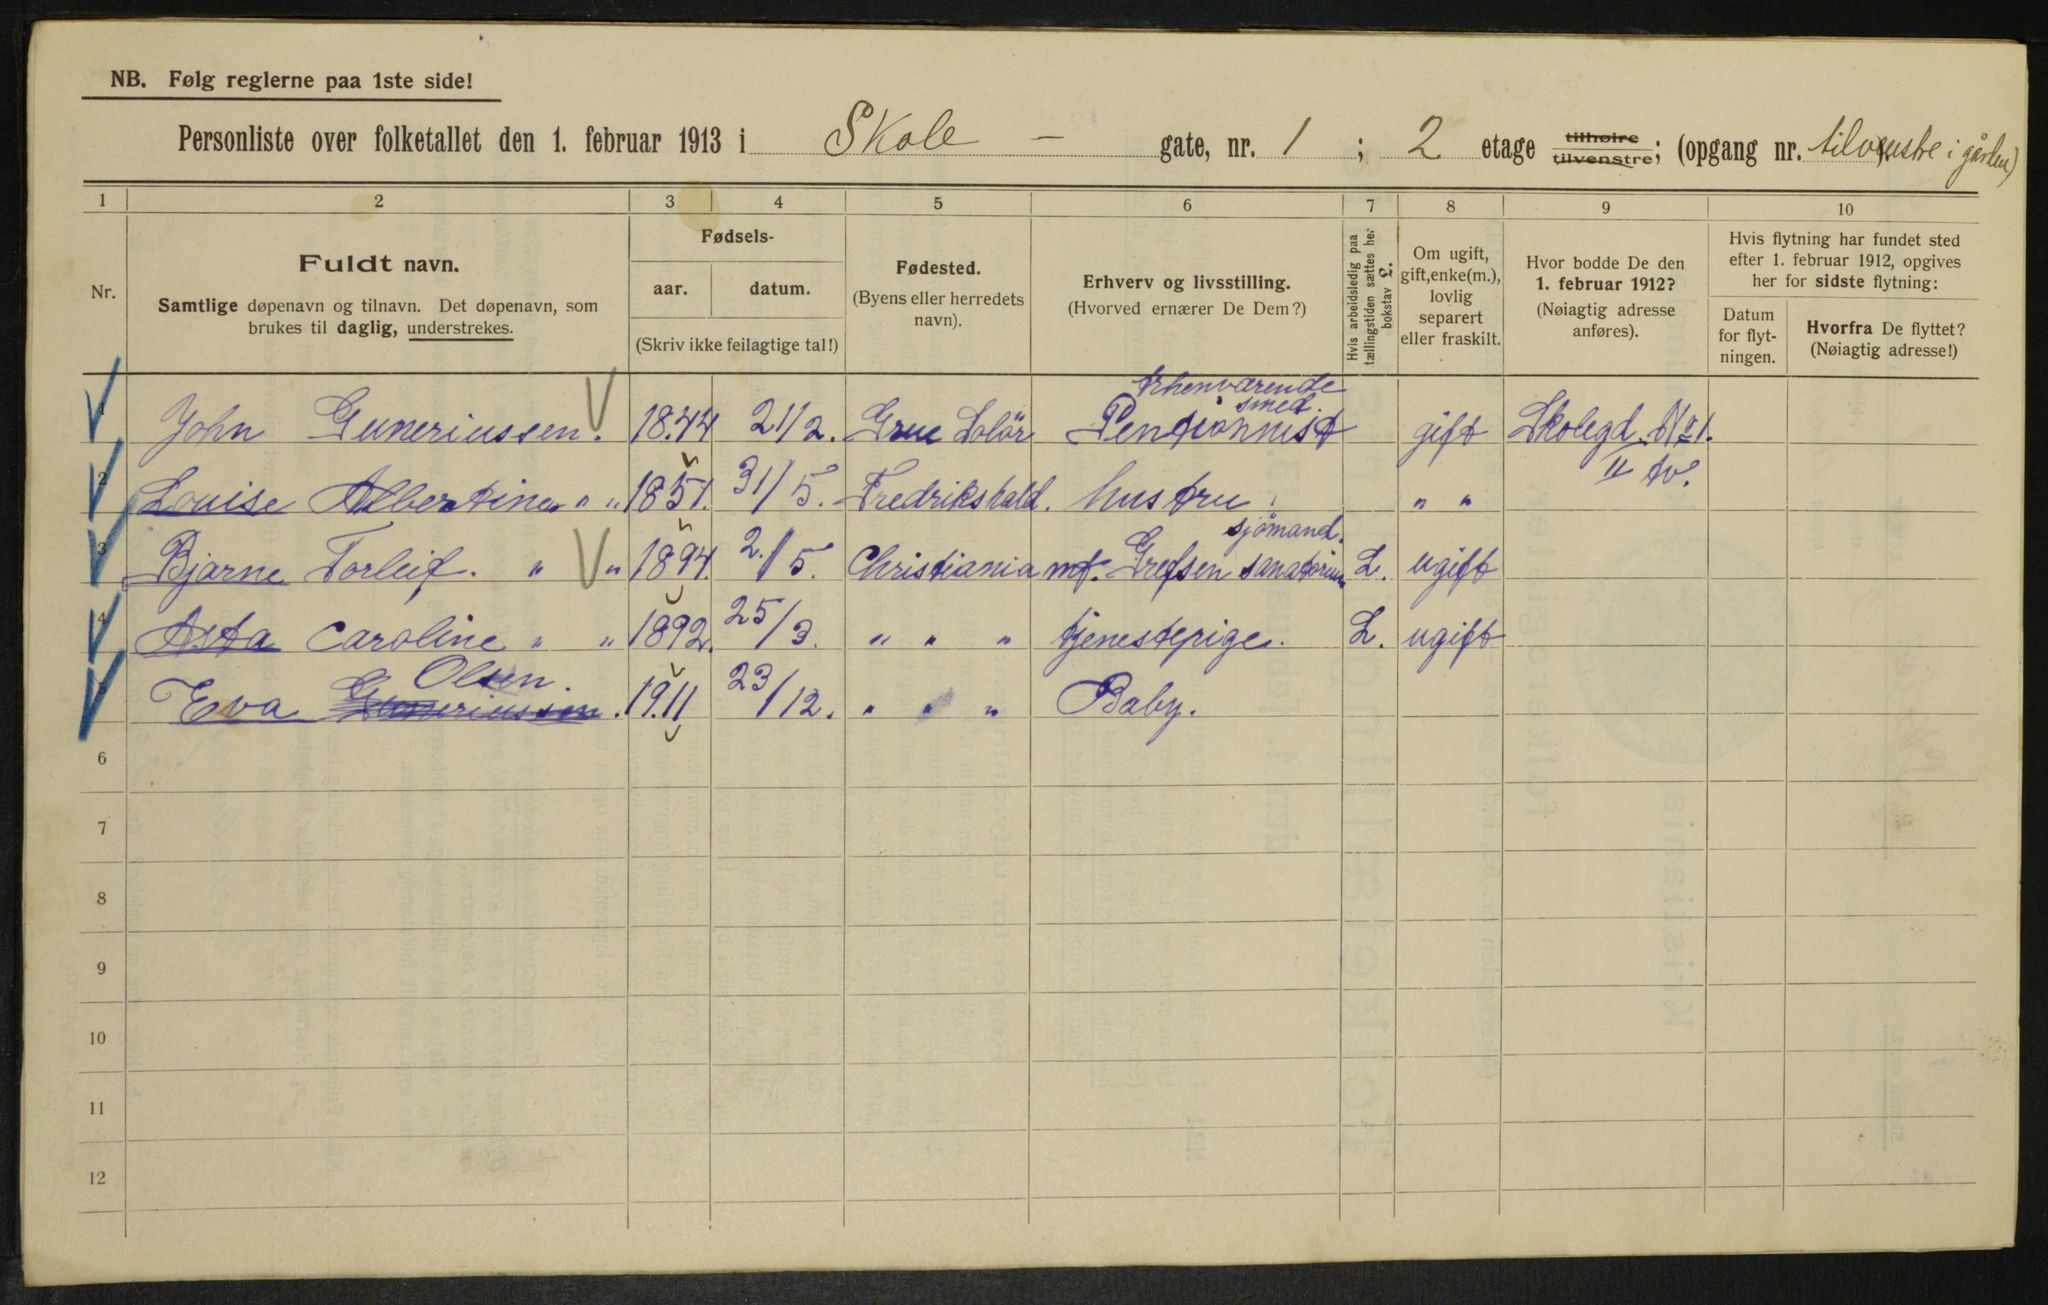 NB. Følg reglerne paa 1ste side!
Personliste over folketallet den 1. februar 1913 i Skole - gate, nr. 1 ; 2 etage tilhøire tilvenstre; (opgang nr. tilvenstre i gården)
1 2 3 4 5 6 7 8 9 10
Nr.
Fuldt navn.
Samtlige døpenavn og tilnavn. Det døpenavn, som
brukes til daglig, understrekes.
Fødsels-
aar. datum.
(Skriv ikke feilagtige tal!)
Fødested.
(Byens eller herredets
navn).
Erhverv og livsstilling.
(Hvorved ernærer De Dem?)
Hvis arbeidsledig paa
tællingstiden sættes her
bokstav L.
Om ugift,
gift, enke(m.),
lovlig
separert
eller fraskilt.
Hvor bodde De den
1. februar 1912?
(Nøiagtig adresse
anføres).
Hvis flytning har fundet sted
efter 1. februar 1912, opgives
her for sidste flytning:
Datum
for flyt-
ningen.
Hvorfra De flyttet?
(Nøiagtig adresse!)
smed.
1 John Guneriussen. 1844 21/2. Grue Solör Pentionnist gift Skolegd. No 1.
II tv.
2 Louise Albertine " " 1851. 31/5. Fredrikshald. hustru. " "
sjömand.
3 Bjarne Torleif. " " 1894. 2/5. Christiania mf. Grefsen sanatorium L. ugift
4 Asta Caroline " " 1892. 25/3. " " " tjenestepige. L. ugift
Olsen.
5 Eva Guneriussen. 1911 23/12. " " " Baby.
6
7
8
9
10
11
12